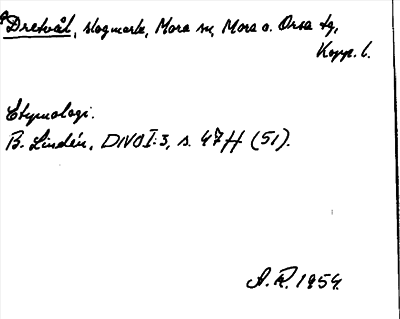 Dretvål, skogmark, Mora sn, Mora o. Orsa tg,
Kopp. l.
Etymologi.
B. Lindén, DIVO I:3, s. 47 ff (51).
A. R. 1954.